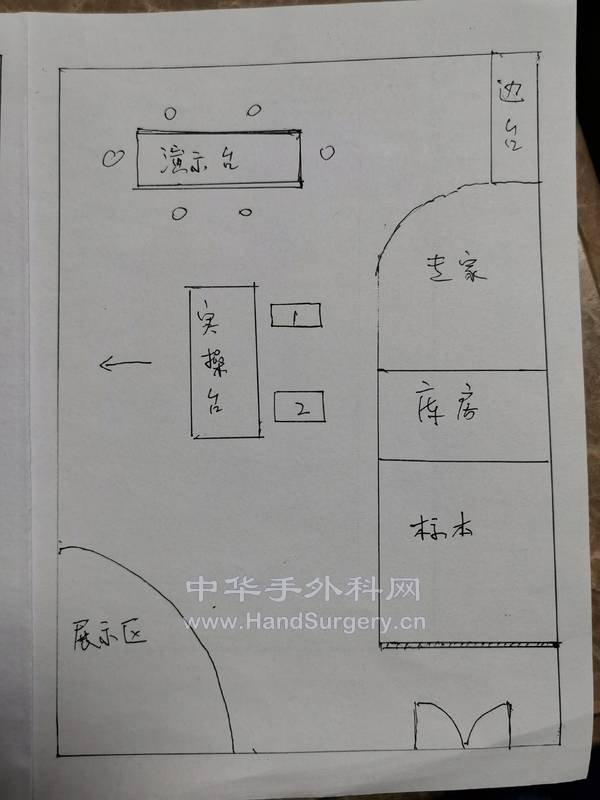 边台
演示台
专家
实操台
1
2
库房
标本
中华手外科网
www.HandSurgery.cn
展示区